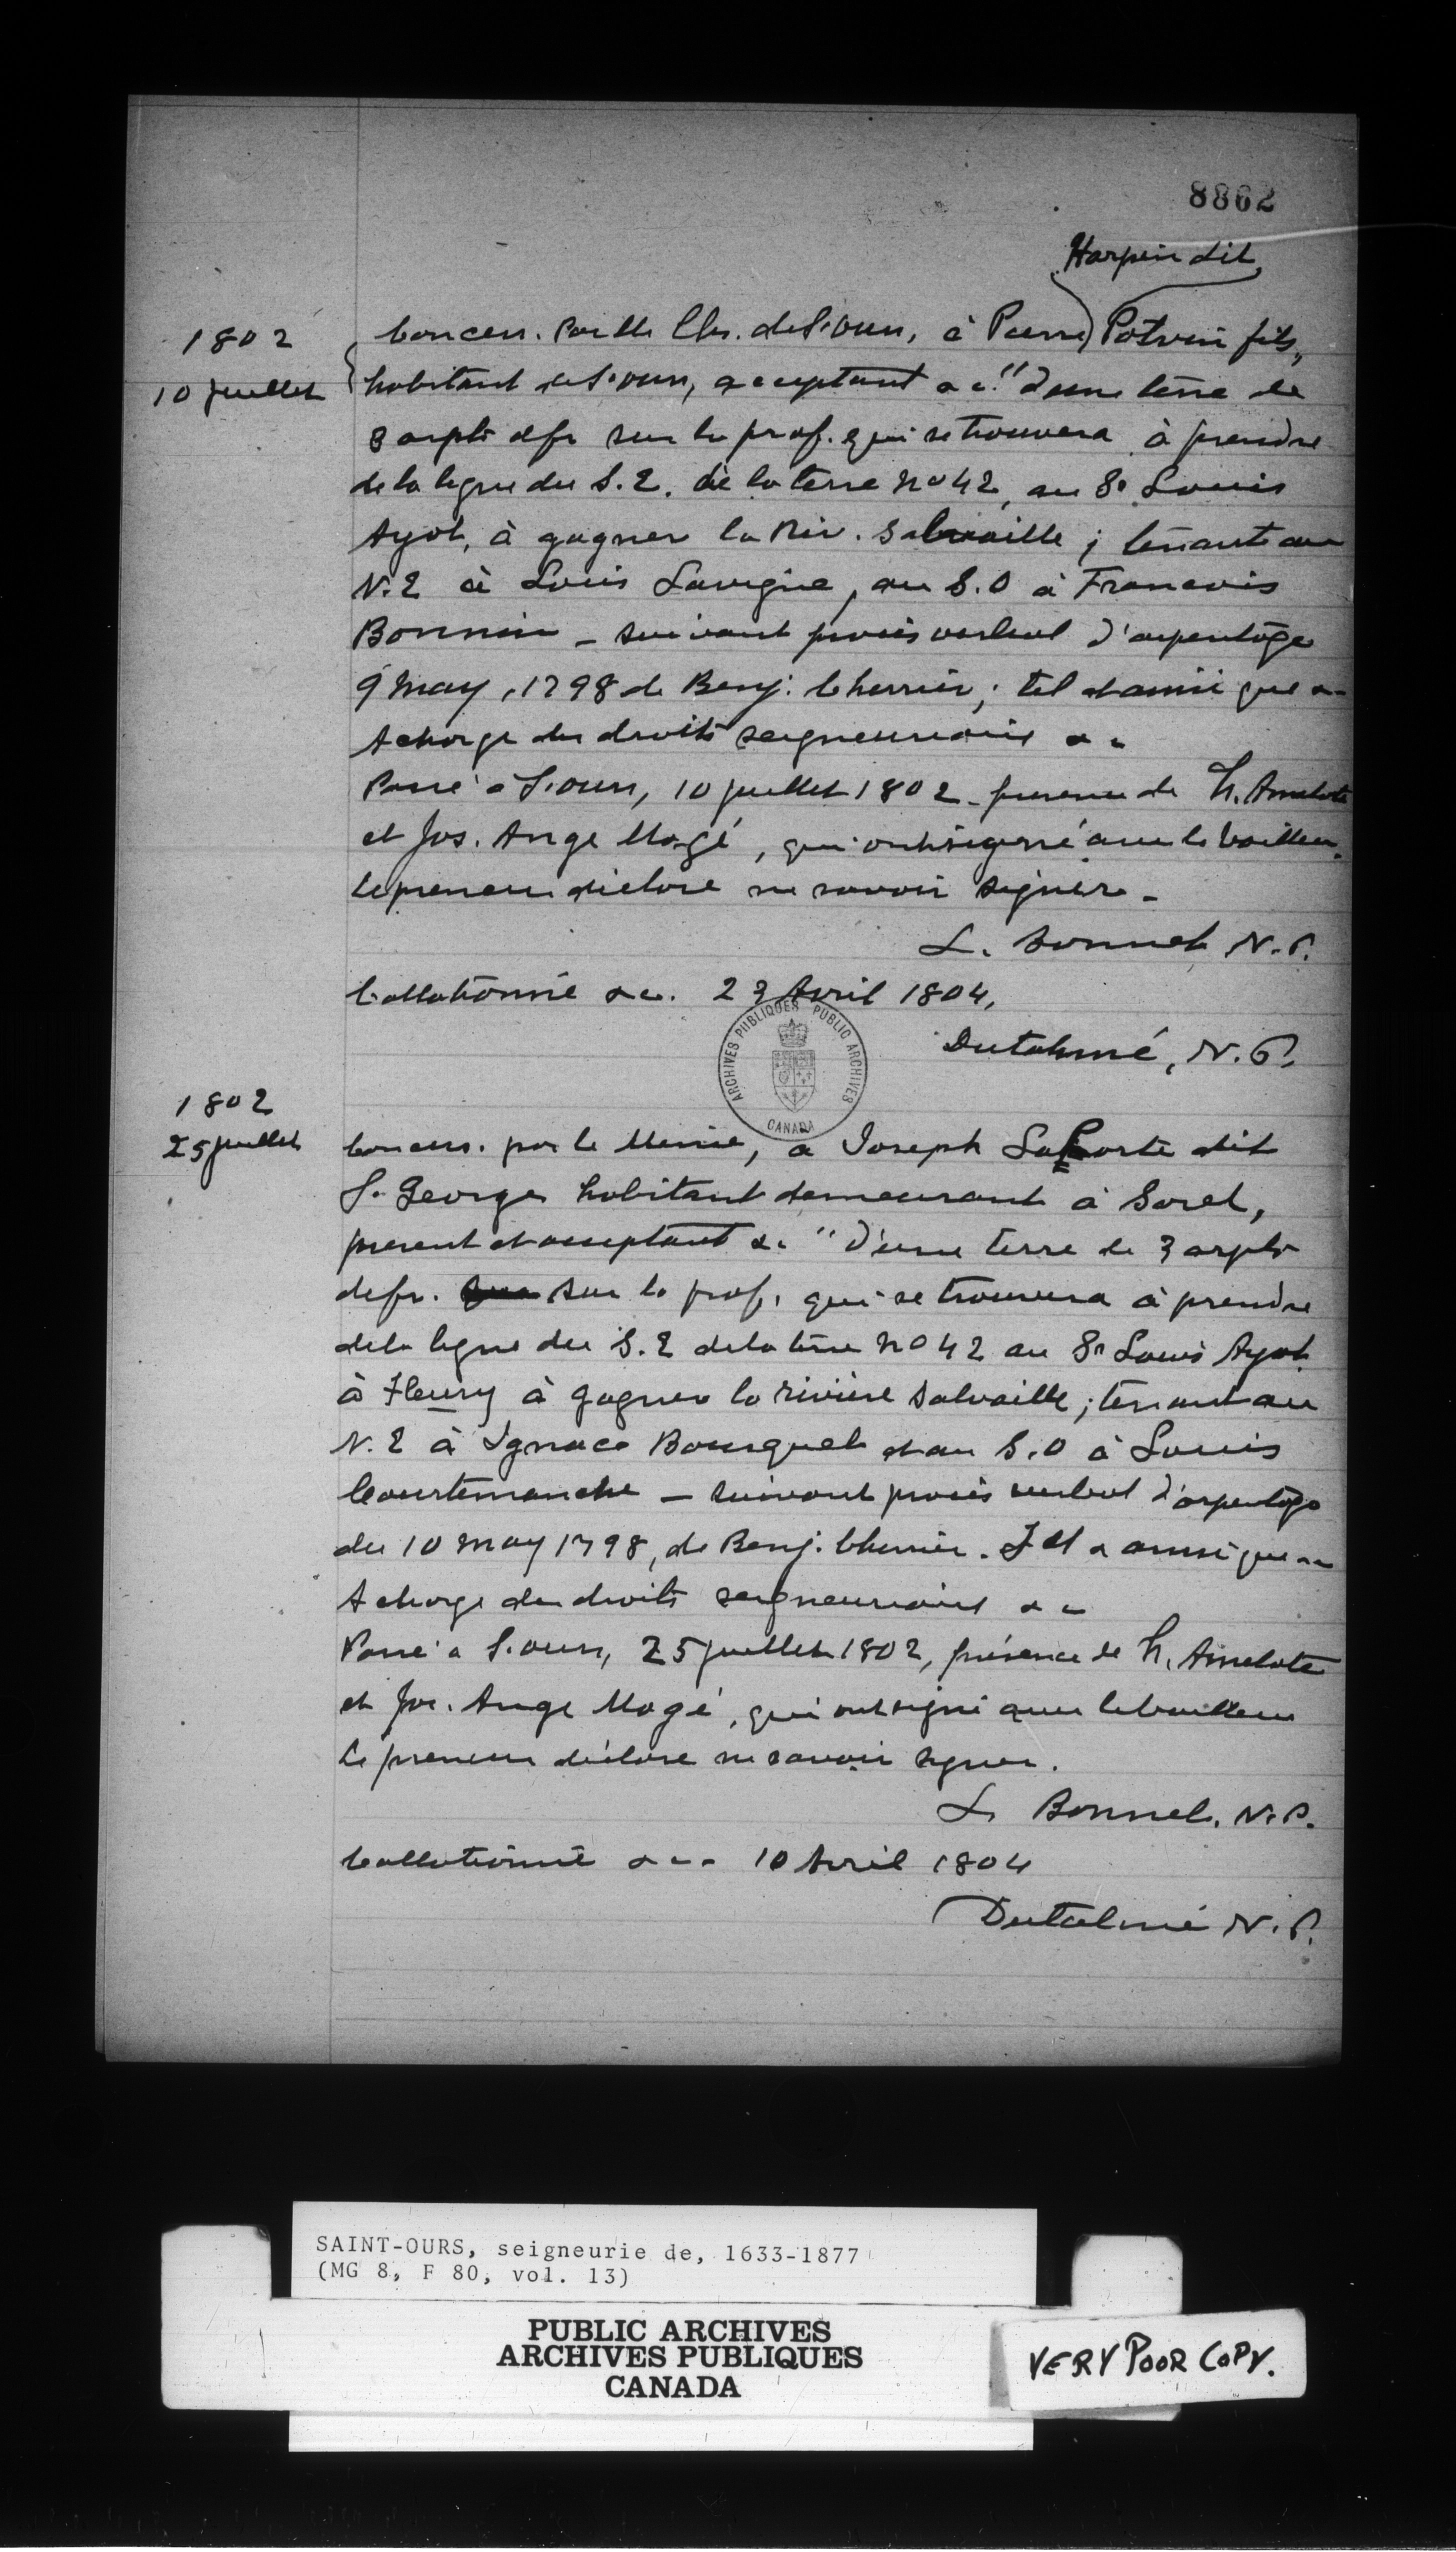 8862
Harpin dit
1802
10 juillet
Concess. par Ch. de S. Ours, à Pierre Potvin fils,
habitant de S. Ours, acceptant &c. "d'une terre de
3 arpts de fr sur la prof. qui se trouvera à prendre
de la ligne du S.E. de la terre No 42, au Sr Louis
Ayot, à gagner la Riv. Salvaille ; tenant au
N.E à Louis Lavigne, au S.O à Francois
Bonnin - suivant procès verbal d'arpentage
9 May, 1798 de Benj. Cherrier; tel et ainsi que &c
A charge des droits seigneuriaux &c
Passé à S. Ours, 10 juillet 1802 - presence de h. Amelotte
et Jos. Ange Magé, qui ont signé avec le bailleur.
Le preneur déclare ne savoir signer -
L. Bonnet N.P.
Collationné &c. 23 Avril 1804,
Dutalmé, N.P.
ARCHIVES PUBLIQUES PUBLIC ARCHIVES
CANADA
1802
25 juillet
Concess. par le Meme, a Joseph LaPorte dit
S. George habitant demeurant à Sorel,
present et acceptant &c "d'une terre de 3 arpts
de fr. sur la prof. qui se trouvera à prendre
de la ligne du S.E de la terre No 42 au Sr Louis Ayot
à Fleury à gagner la rivière Salvaille ; tenant au
N.E à Ignace Bousquet et au S.O à Louis
Courtemanche - suivant procès verbal d'arpentage
du 10 May 1798, de Benj. Cherrier. Tel & ainsi que &c
A charge des droits seigneuriaux &c
Passé a S. Ours, 25 juillet 1802, présence de h. Amelotte
et Jos. Ange Magé, qui ont signé avec le bailleur
Le preneur déclare ne savoir signer.
L. Bonnet. N.P.
Collationné &c - 10 Avril 1804
Dutalmé N.P.
SAINT-OURS, seigneurie de, 1633-1877
(MG 8, F 80, vol. 13)
PUBLIC ARCHIVES
ARCHIVES PUBLIQUES
CANADA
VERY POOR COPY.